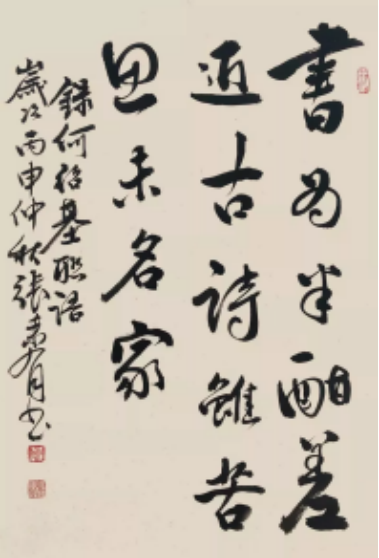 書为半酣差
近古詩雖苦
思未名家
錄何紹基聯語
歲次丙申仲秋張书